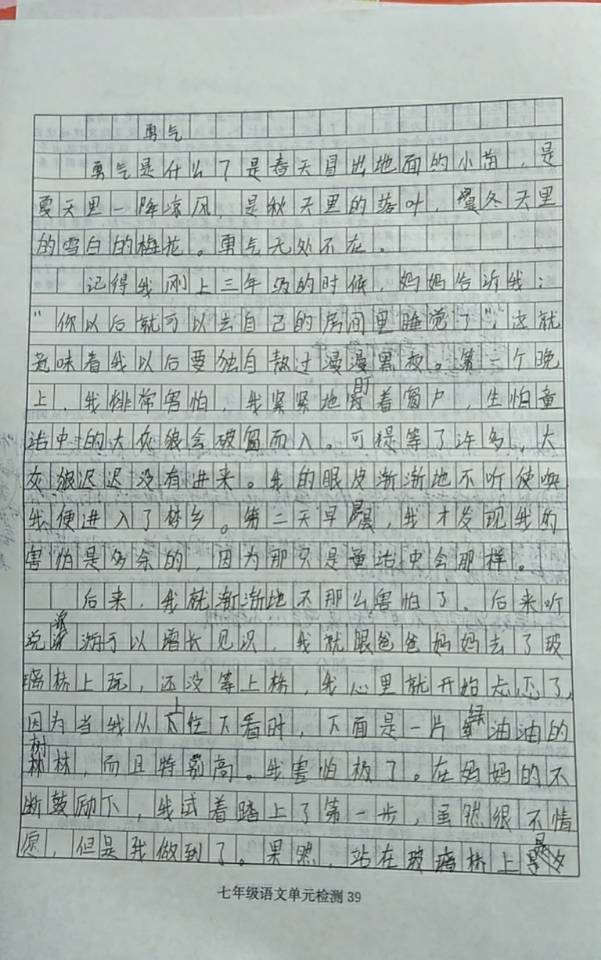 勇气
勇气是什么？是春天冒出地面的小苗，是
夏天里一阵凉风，是秋天里的落叶，是冬天里
的雪白的梅花。勇气无处不在。
记得我刚上三年级的时候，妈妈告诉我：
“你以后就可以去自己的房间里睡觉了”，这就
意味着我以后要独自熬过漫漫黑夜。第一个晚
上，我非常害怕，我紧紧地盯着窗户，生怕童
话中的大灰狼会破窗而入。可是等了许多，大
灰狼迟迟没有进来。我的眼皮渐渐地不听使唤
我便进入了梦乡。第二天早晨，我才发现我的
害怕是多余的，因为那只是童话中会那样。
后来，我就渐渐地不那么害怕了。后来听
说旅游可以增长见识，我就跟爸爸妈妈去了玻
璃桥上玩，还没等上桥，我心里就开始忐忑了，
因为当我从上往下看时，下面是一片绿油油的
树林，而且特别高。我害怕极了。在妈妈的不
断鼓励下，我试着踏上了第一步，虽然很不情
愿，但是我做到了。果然，站在玻璃桥上是
七年级语文单元检测 39